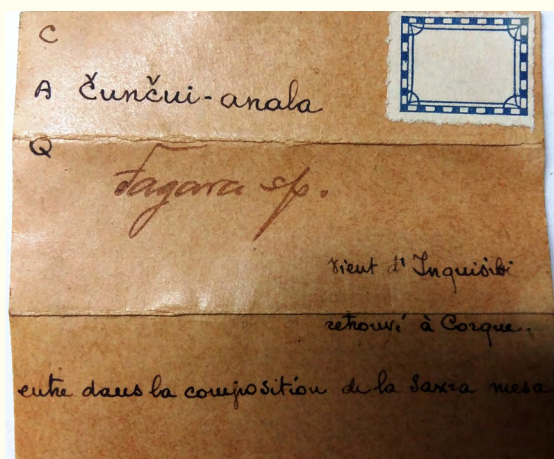 C
A čunčui-anala
Q
Fagara sp.
vient d'Inquisibi
retrouvé à Corque.
entre dans la composition de la saxra mesa